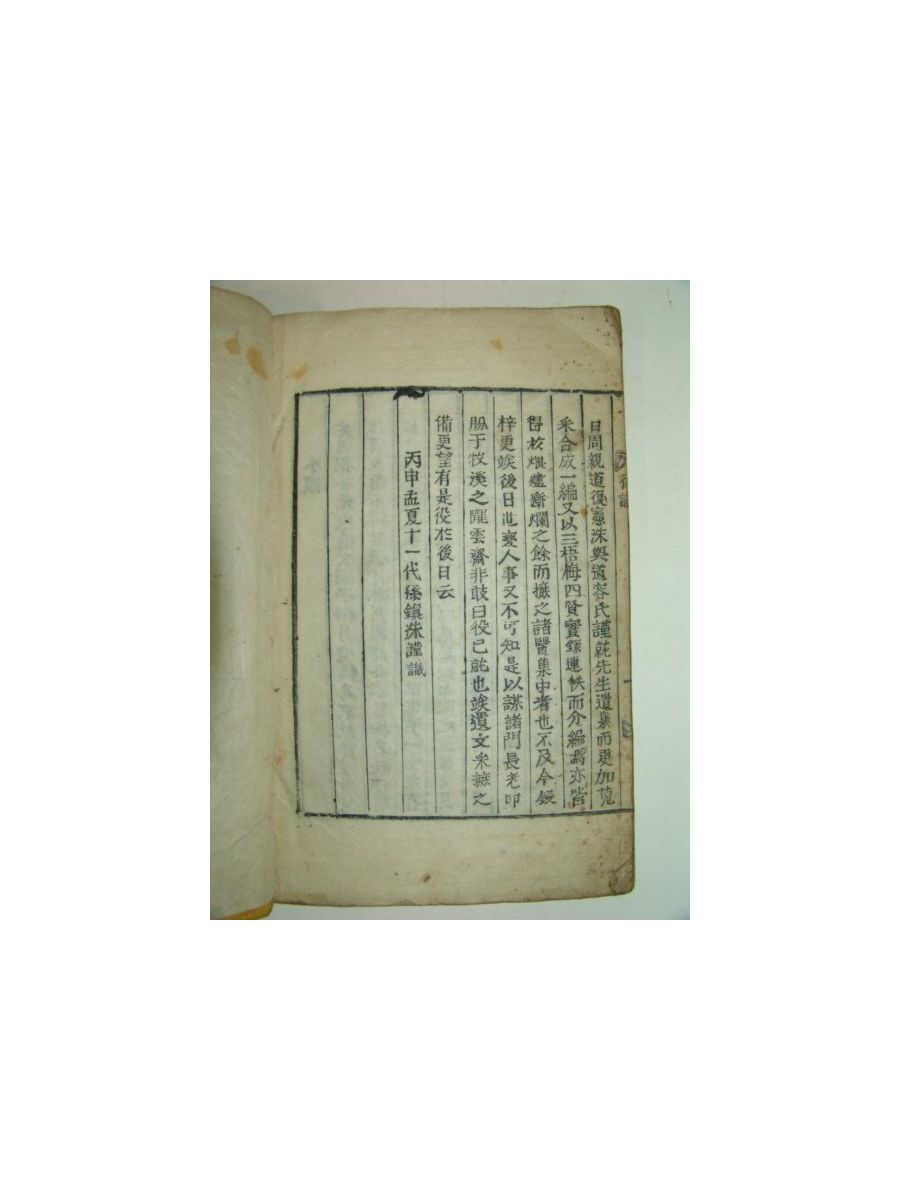 日周親道復憲洙與道容氏謹蒐先生遺集而更加蒐
采合成一編又以三梧梅四賢實錄連帙而介編焉亦皆
得於煨爐斷爛之餘而摭之諸賢集中者也不及今鋟
梓更竢後日世變人事又不可知是以謀諸門長老印
役于牧溪之隴雲齋非敢曰役已就也竢遺文采摭之
備更望有是役於後日云
丙申孟夏十一代孫鎭洙謹識